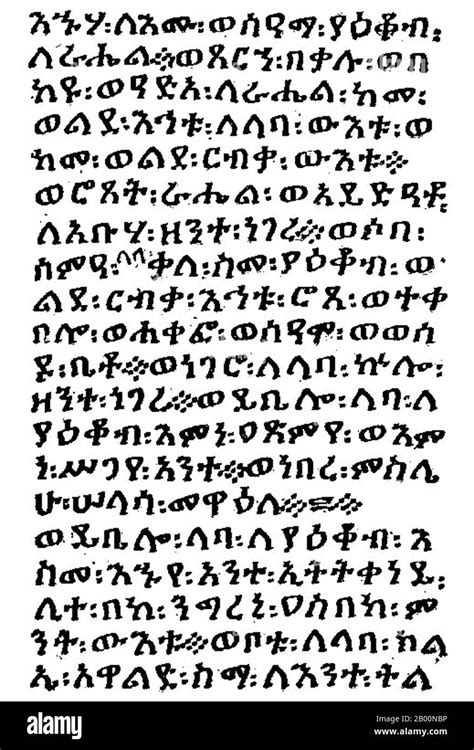 እኁሃ፡ለእሙ፡ወሰዓማ፡ያዕቆብ፡
ለራሔል፨ወጸርኀ፡በቃሉ፡ወበ
ከየ፡ለራሔል፡ከመ፡
ወልደ፡እኅቱ፡ለላባ፡ውእቱ፡ወ
ከመ፡ወልደ፡ርብቃ፡ውእቱ፨
ወሮጸት፡ራሔል፡ወአይድዓቶ፡
ለአቡሃ፡ዘንተ፡ነገረ፨ወሶበ፡
ሰምዓ፡ላባ፡ቃለ፡ስመ፡ያዕቆብ፡ወ
ልደ፡ርብቃ፡እኅቱ፡ሮጸ፡ወተቀ
በሎ፡ወሐቀፎ፡ወሰዓሞ፡ወወሰ
ዶ፡ቤቶ፨ወነገሮ፡ለላባ፡ኵሎ፡
ዘንተ፡ነገረ፨ወይቤሎ፡ላባ፡ለ
ያዕቆብ፡እምነ፡ዐጽምየ፡ወእም
ነ፡ሥጋየ፡አንተ፨ወነበረ፡ምስሌ
ሁ፡ሠላሳ፡መዋዕለ፨
ወይቤሎ፡ላባ፡ለያዕቆብ፡እ
ስመ፡እኁየ፡አንተ፡ኢትትቀነይ፡
ሊተ፡በከ፡ንግረኒ፡ዐስበከ፡ም
ንት፡ውእቱ፨ወቦቱ፡ለላባ፡ክል
ኤ፡አዋልድ፡ስማ፡ለእንተ፡ተል
alamy
Image ID: 2B00NBP
www.alamy.com